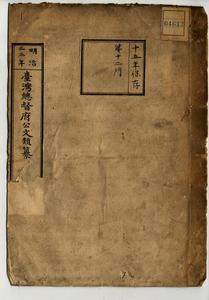 04612
十五年保存
第十二門
明治
三三年
臺灣總督府公文類纂